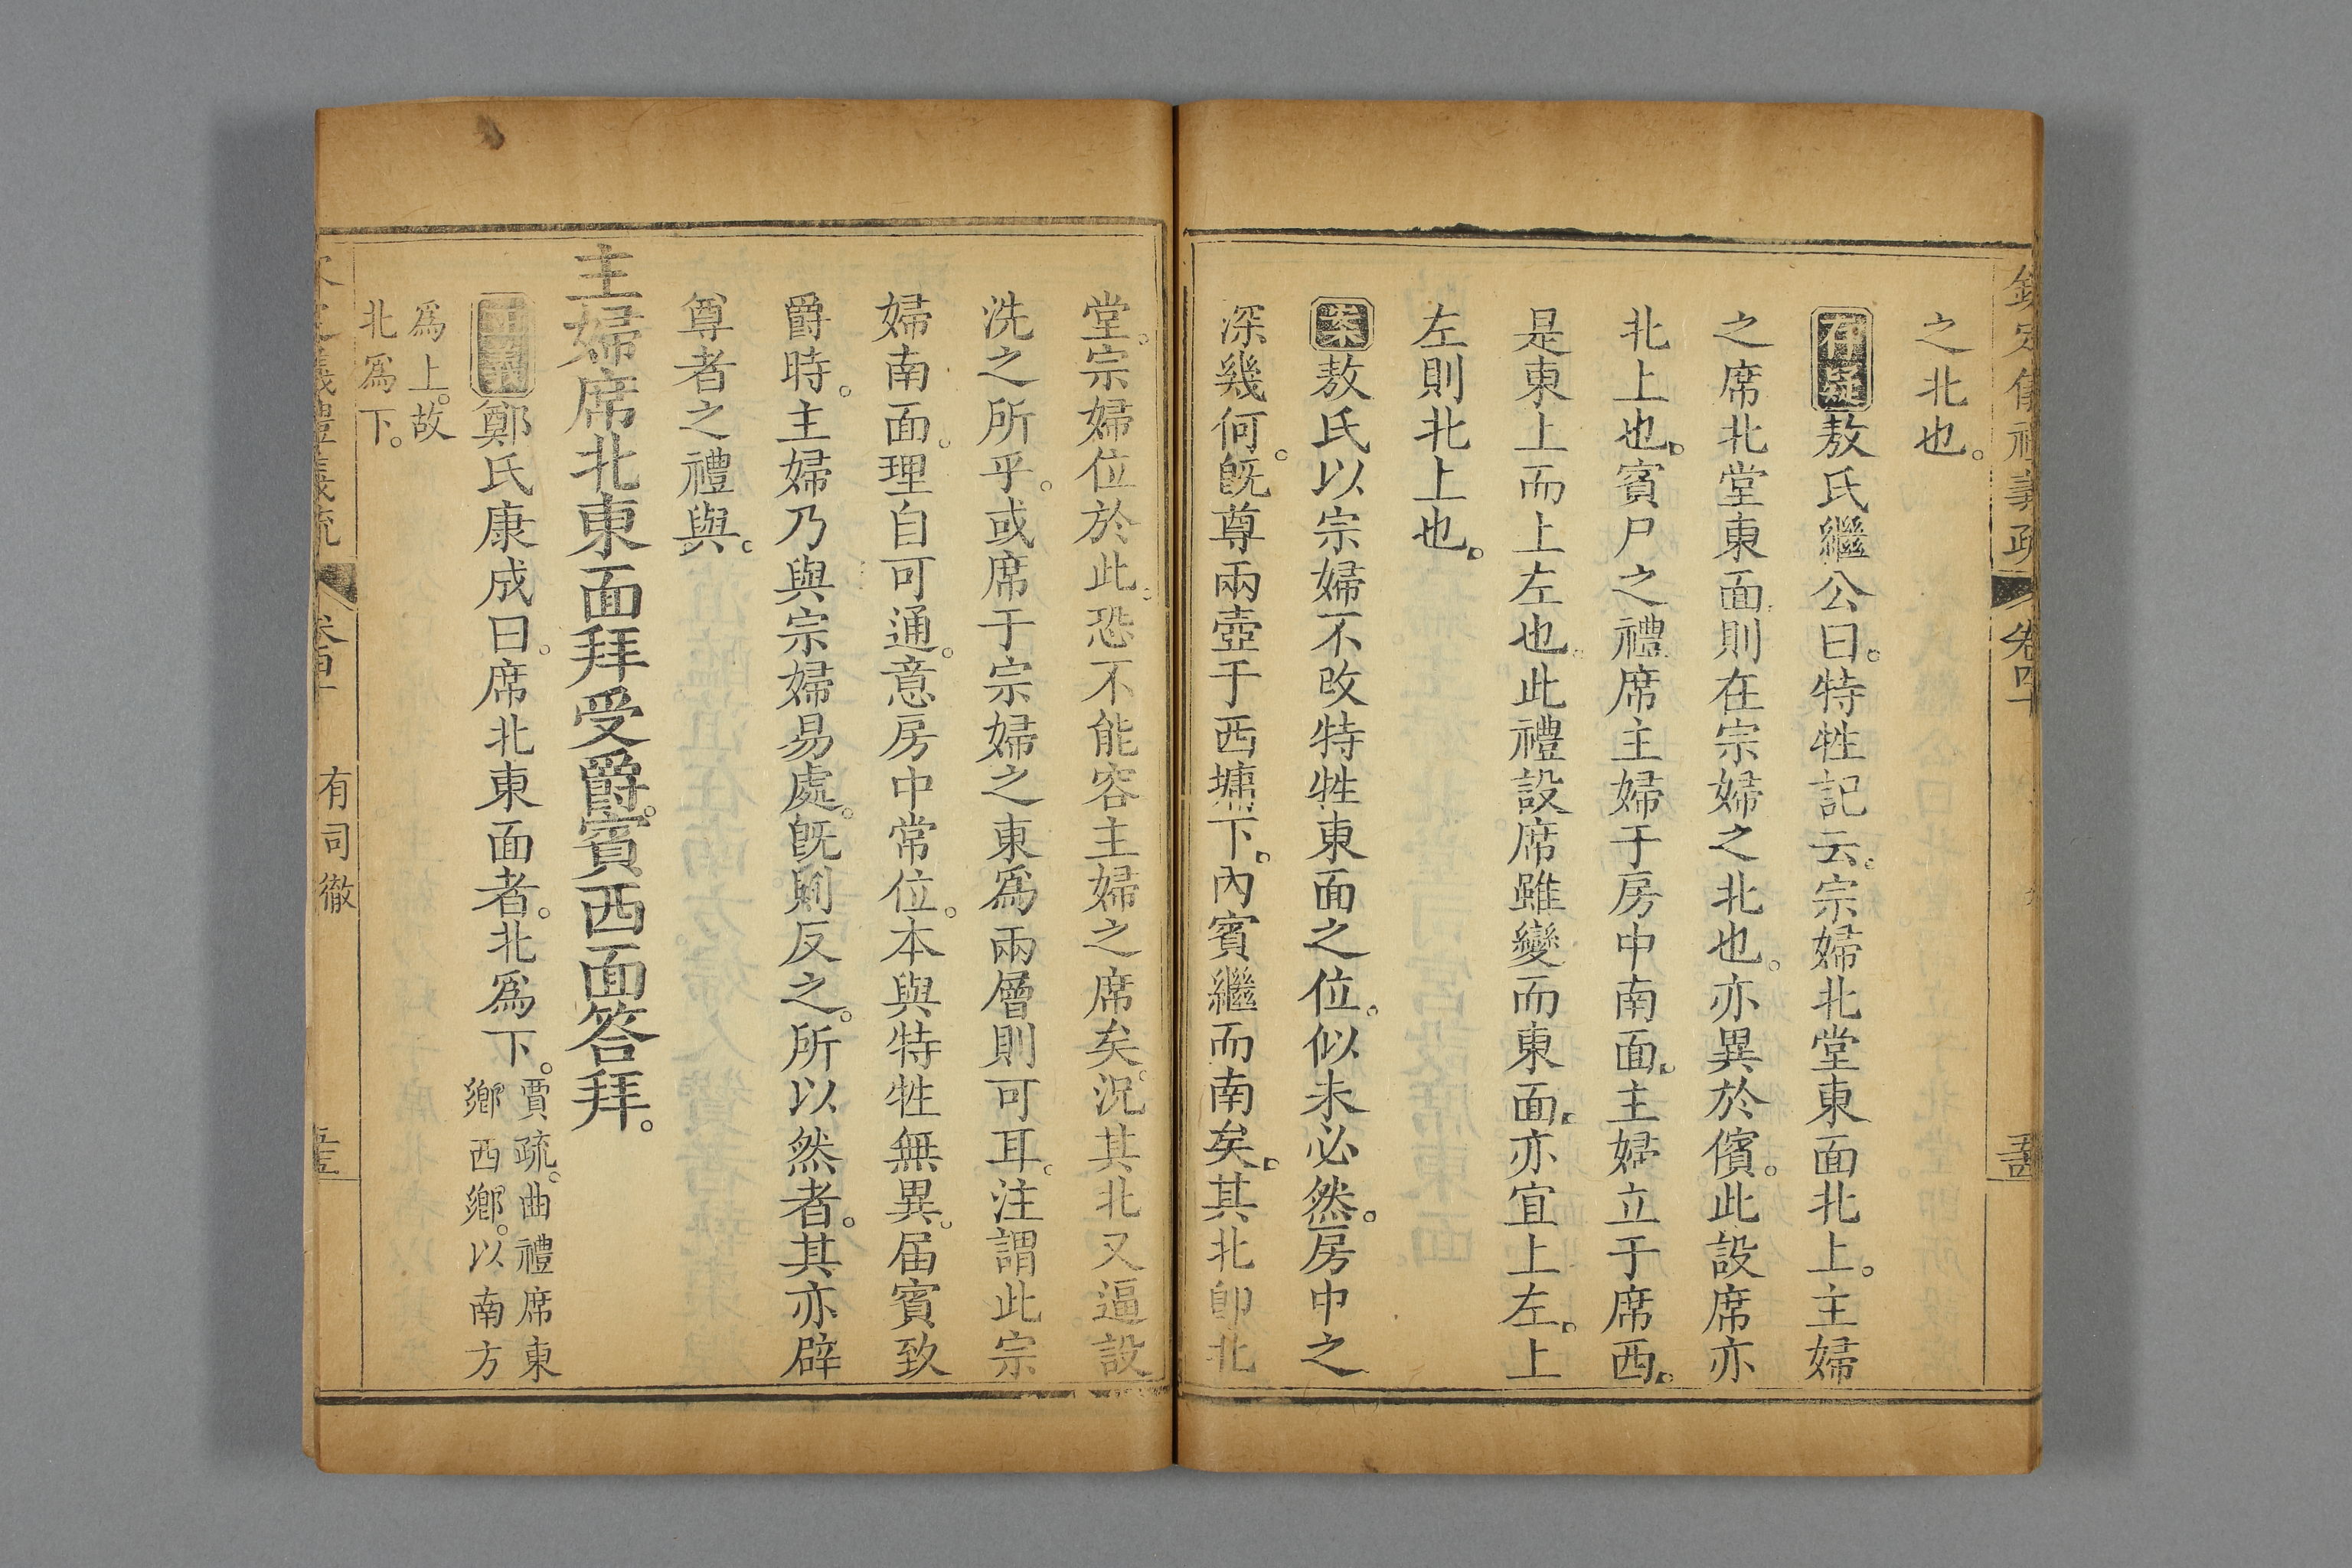 欽定儀禮義疏 卷四十
之北也。
存疑敖氏繼公曰。特牲記云。宗婦北堂東面北上。主婦
之席北堂東面。則在宗婦之北也。亦異於儐。此設席亦
北上也。賓尸之禮。席主婦于房中南面。主婦立于席西。
是東上而上左也。此禮設席雖變而東面。亦宜上左。上
左則北上也。
案敖氏以宗婦不改特牲東面之位。似未必然。房中之
深幾何。旣尊兩壺于西墉下。內賓繼而南矣。其北卽北
堂。宗婦位於此。恐不能容主婦之席矣。況其北又逼設
洗之所乎。或席于宗婦之東爲兩層則可耳。注謂此宗
婦南面。理自可通。意房中常位。本與特牲無異。届賓致
爵時。主婦乃與宗婦易處。旣則反之。所以然者。其亦辟
尊者之禮與。
主婦席北東面拜受爵。賓西面答拜。
正義鄭氏康成曰。席北東面者。北爲下。賈疏。曲禮席東
鄉西鄉。以南方
爲上。故
北爲下。
義禮義疏 有司徹